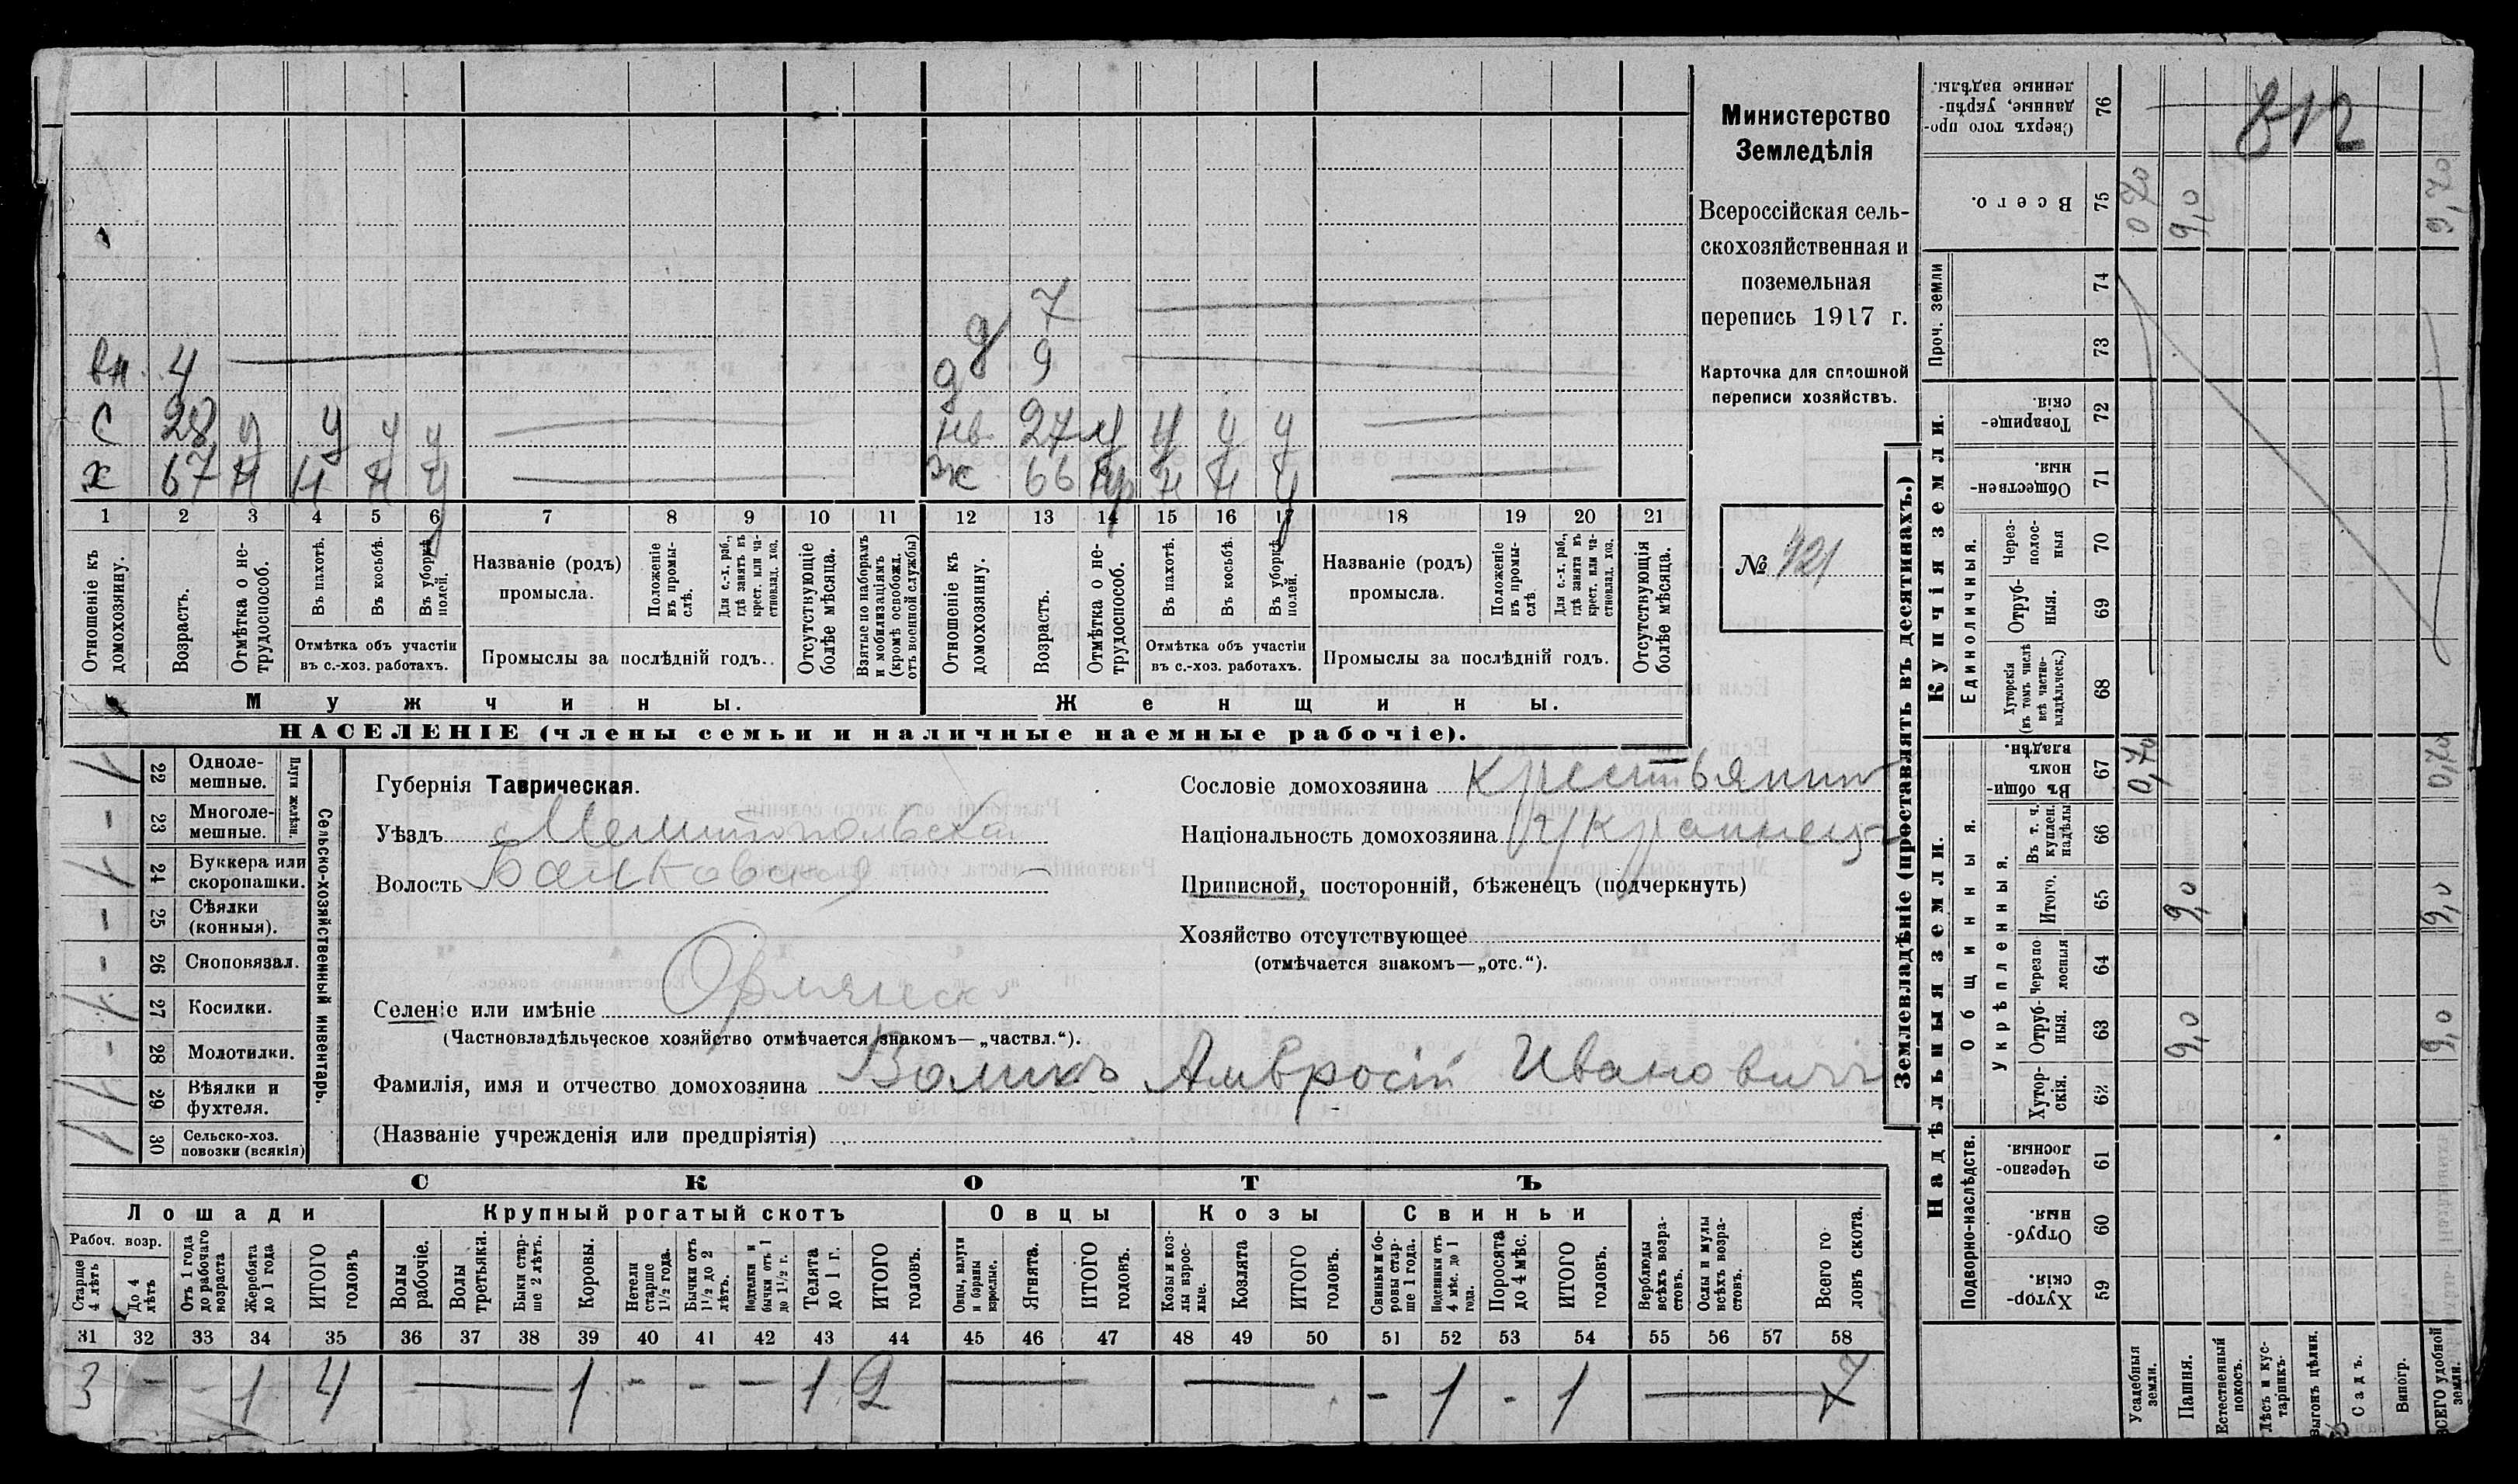 812
Министерство
Земледѣлія
Всероссійская сель-
скохозяйственная и
поземельная
перепись 1917 г.
Карточка для сплошной
переписи хозяйствъ.
№ 421
д 7
вн. 4 д 9
с 28 у у у у нв. 27 у у у у
х 67 н н н у ж 66 нр н н у
1 2 3 4 5 6 7 8 9 10 11 12 13 14 15 16 17 18 19 20 21
Отношеніе къ домохозяину.
Возрастъ.
Отмѣтка о не-трудоспособ.
Въ пахотѣ.
Въ косьбѣ.
Въ уборкѣ полей.
Отмѣтка объ участіи въ с.-хоз. работахъ.
Названіе (родъ) промысла.
Положеніе въ промы-слѣ.
Для с.-х. раб., гдѣ занятъ въ крест. или ча-стновлад. хоз.
Промыслы за послѣдній годъ.
Отсутствующіе болѣе мѣсяца.
Взятые по наборамъ и мобилизаціямъ (кромѣ освобожд. отъ военной службы)
Отношеніе къ домохозяину.
Возрастъ.
Отмѣтка о не-трудоспособ.
Въ пахотѣ.
Въ косьбѣ.
Въ уборкѣ полей.
Отмѣтка объ участіи въ с.-хоз. работахъ.
Названіе (родъ) промысла.
Положеніе въ промы-слѣ.
Для с.-х. раб., гдѣ занята въ крест. или ча-стновлад. хоз.
Промыслы за послѣдній годъ.
Отсутствующія болѣе мѣсяца.
Мужчины. Женщины.
НАСЕЛЕНІЕ (члены семьи и наличные наемные рабочіе).
Сельско-хозяйственный инвентарь.
Плуги желѣзн.
22 Одноле-мешные. 1
23 Многоле-мешные. –
24 Буккера или скоропашки. 1
25 Сѣялки (конныя). –
26 Сноповязал. –
27 Косилки. 1
28 Молотилки. –
29 Вѣялки и фухтеля. 1
30 Сельско-хоз. повозки (всякія) 1
Губернія Таврическая.
Уѣздъ Мелитопольскій
Волость Балковская
Селеніе или имѣніе Орлянска
(Частновладѣльческое хозяйство отмѣчается знакомъ—„частвл.“).
Фамилія, имя и отчество домохозяина Воликъ Амвросій Ивановичъ
(Названіе учрежденія или предпріятія)
Сословіе домохозяина крестьянинъ
Національность домохозяина Украинецъ
Приписной, посторонній, бѣженецъ (подчеркнуть)
Хозяйство отсутствующее
(отмѣчается знакомъ—„отс.“).
СКОТЪ
Лошади Крупный рогатый скотъ Овцы Козы Свиньи
Рабоч. возр.
Старше 4 лѣтъ
До 4 лѣтъ
Отъ 1 года до рабочаго возраста
Жеребята до 1 года
ИТОГО головъ
Волы рабочіе.
Волы третьяки.
Быки стар-ше 2 лѣтъ.
Коровы.
Нетели старше 1½ года.
Бычки отъ 1½ до 2 лѣтъ.
Подтелки и бычки отъ 1 до 1½ г.
Телята до 1 г.
ИТОГО головъ.
Овцы, валухи и бараны взрослые.
Ягнята.
ИТОГО головъ.
Козы и коз-лы взрос-лые.
Козлята
ИТОГО головъ.
Свиньи и бо-ровы стар-ше 1 года.
Подсвинки отъ 4 мѣс. до 1 года.
Поросята до 4 мѣс.
ИТОГО головъ.
Верблюды всѣхъ возра-стовъ.
Ослы и мулы всѣхъ возра-стовъ.
Всего го-ловъ скота.
31 32 33 34 35 36 37 38 39 40 41 42 43 44 45 46 47 48 49 50 51 52 53 54 55 56 57 58
3 – – 1 4 — 1 – – – 1 2 — — – 1 - 1 — 7
Землевладѣніе (проставлять въ десятинахъ.)
Надѣльныя земли.
Купчія земли.
Проч. земли
Подворно-наслѣдств.
Общинныя.
Укрѣпленныя.
Единоличныя.
59 Хутор-скія.
60 Отруб-ныя.
61 Черезпо-лосныя.
62 Хутор-скія.
63 Отруб-ныя. 9,0 9,0
64 Черезпо-лосныя
65 Итого. 9,0 9,0
66 Въ т. ч. куплен. надѣлы
67 Въ общи-номъ владѣн. 0,70 0,70
68 Хуторскія (въ томъ числѣ всѣ частно-владѣльческ.)
69 Отруб-ныя.
70 Через-полос-ныя
71 Обществен-ныя.
72 Товарище-скія.
73
74
75 Всего. 0 70 9,0 9,70
76 Сверхъ того про-данные, укрѣп-ленные надѣлы.
Усадебныя земли.
Пашня.
Естественный покосъ.
Лѣсъ и кус-тарникъ.
Выгонъ цѣлин.
Садъ.
Виногр.
ВСЕГО удобной земли.